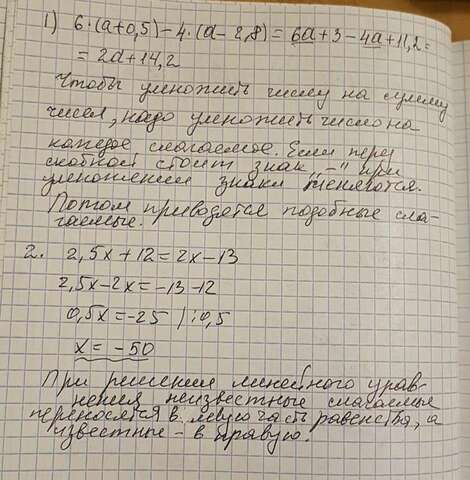 1) 6·(a+0,5)-4·(a-2,8)=6a+3-4a+11,2=
=2a+14,2
Чтобы умножить число на сумму
чисел, надо умножить число на
каждое слагаемое. Если пере
скобкой стоит знак „-" при
умножении знаки меняются.
Потом приводятся подобные сла-
гаемые.
2. 2,5x+12=2x-13
2,5x-2x=-13-12
0,5x=-25 /:0,5
x=-50
При решении линейного урав-
нения неизвестные слагаемые
переносятся в левую часть равенства, а
известные - в правую.